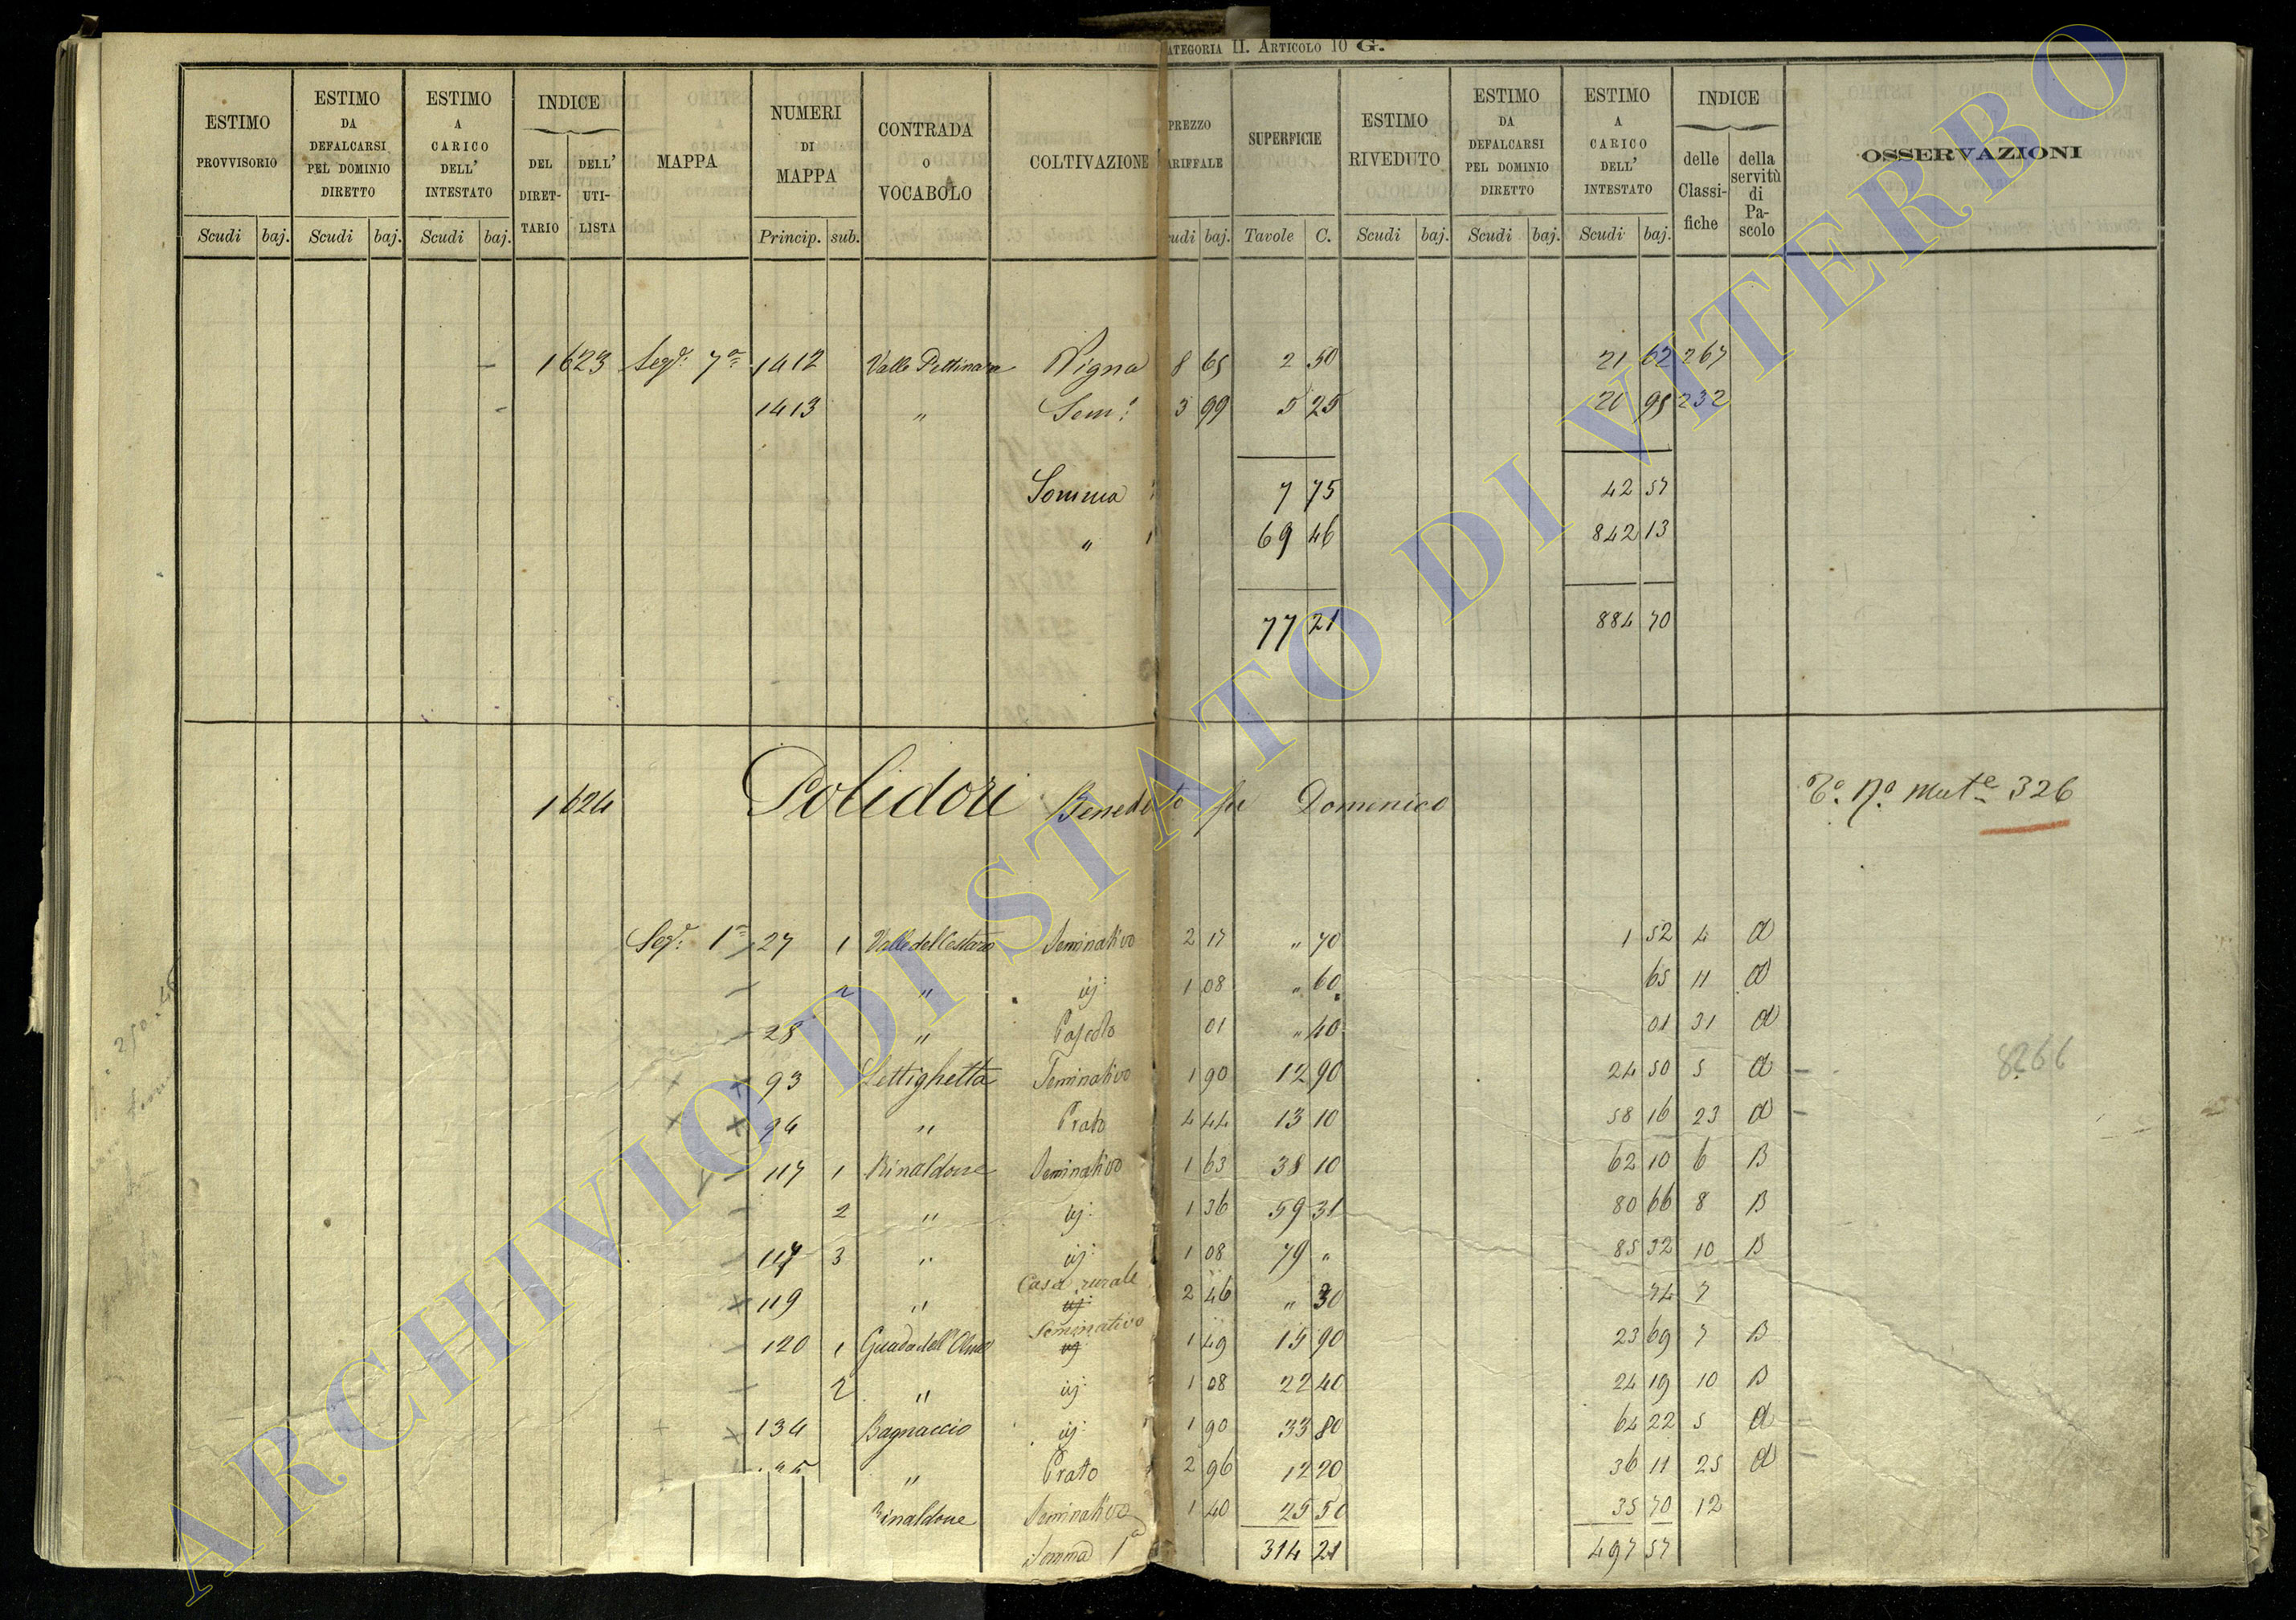 ATEGORIA II. ARTICOLO 10 G.
ESTIMO PROVVISORIO Scudi baj.
ESTIMO DA DEFALCARSI PEL DOMINIO DIRETTO Scudi baj.
ESTIMO A CARICO DELL' INTESTATO Scudi baj.
INDICE DEL DIRET- TARIO DELL' UTI- LISTA
MAPPA
NUMERI DI MAPPA Princip. sub.
CONTRADA O VOCABOLO
COLTIVAZIONE
PREZZO ARIFFALE udi baj.
SUPERFICIE Tavole C.
ESTIMO RIVEDUTO Scudi baj.
ESTIMO DA DEFALCARSI PEL DOMINIO DIRETTO Scudi baj.
ESTIMO A CARICO DELL' INTESTATO Scudi baj.
INDICE delle Classi- fiche della servitù di Pa- scolo
OSSERVAZIONI
1623 Segd. 7a 1412 Valle Pettinara Vigna 8 65 2 50 21 62 267
1413 " Sem: 3 99 5 25 20 95 232
Somma 7 75 42 57
" 69 46 842 13
77 21 884 70
1624 Polidori Benedetto fu Domenico 326
Segd. 1a 27 1 Valle del Cestaro Seminativo 2 17 " 70 1 52 4 A
2 " ij: 1 08 " 60 65 11 A
28 " Pascolo 01 " 40 01 31 A
93 Lettighetta Seminativo 1 90 12 90 24 50 5 A
94 " Prato 4 44 13 10 58 16 23 A
8266
117 1 Rinaldone Seminativo 1 63 38 10 62 10 6 B
2 " ij: 1 36 59 31 80 66 8 B
117 3 " ij: 1 08 79 " 85 32 10 B
119 " Casa rurale 2 46 " 30 74 7
120 1 Guado dell'Olmo Seminativo 1 49 15 90 23 69 7 B
2 " ij: 1 08 22 40 24 19 10 B
134 Bagnaccio ij: 1 90 33 80 64 22 5 A
" Prato 2 96 12 20 36 11 25 A
Rinaldone Seminativo 1 40 25 50 35 70 12
Somma 1a 314 21 497 57
ARCHIVIO DI STATO DI VITERBO